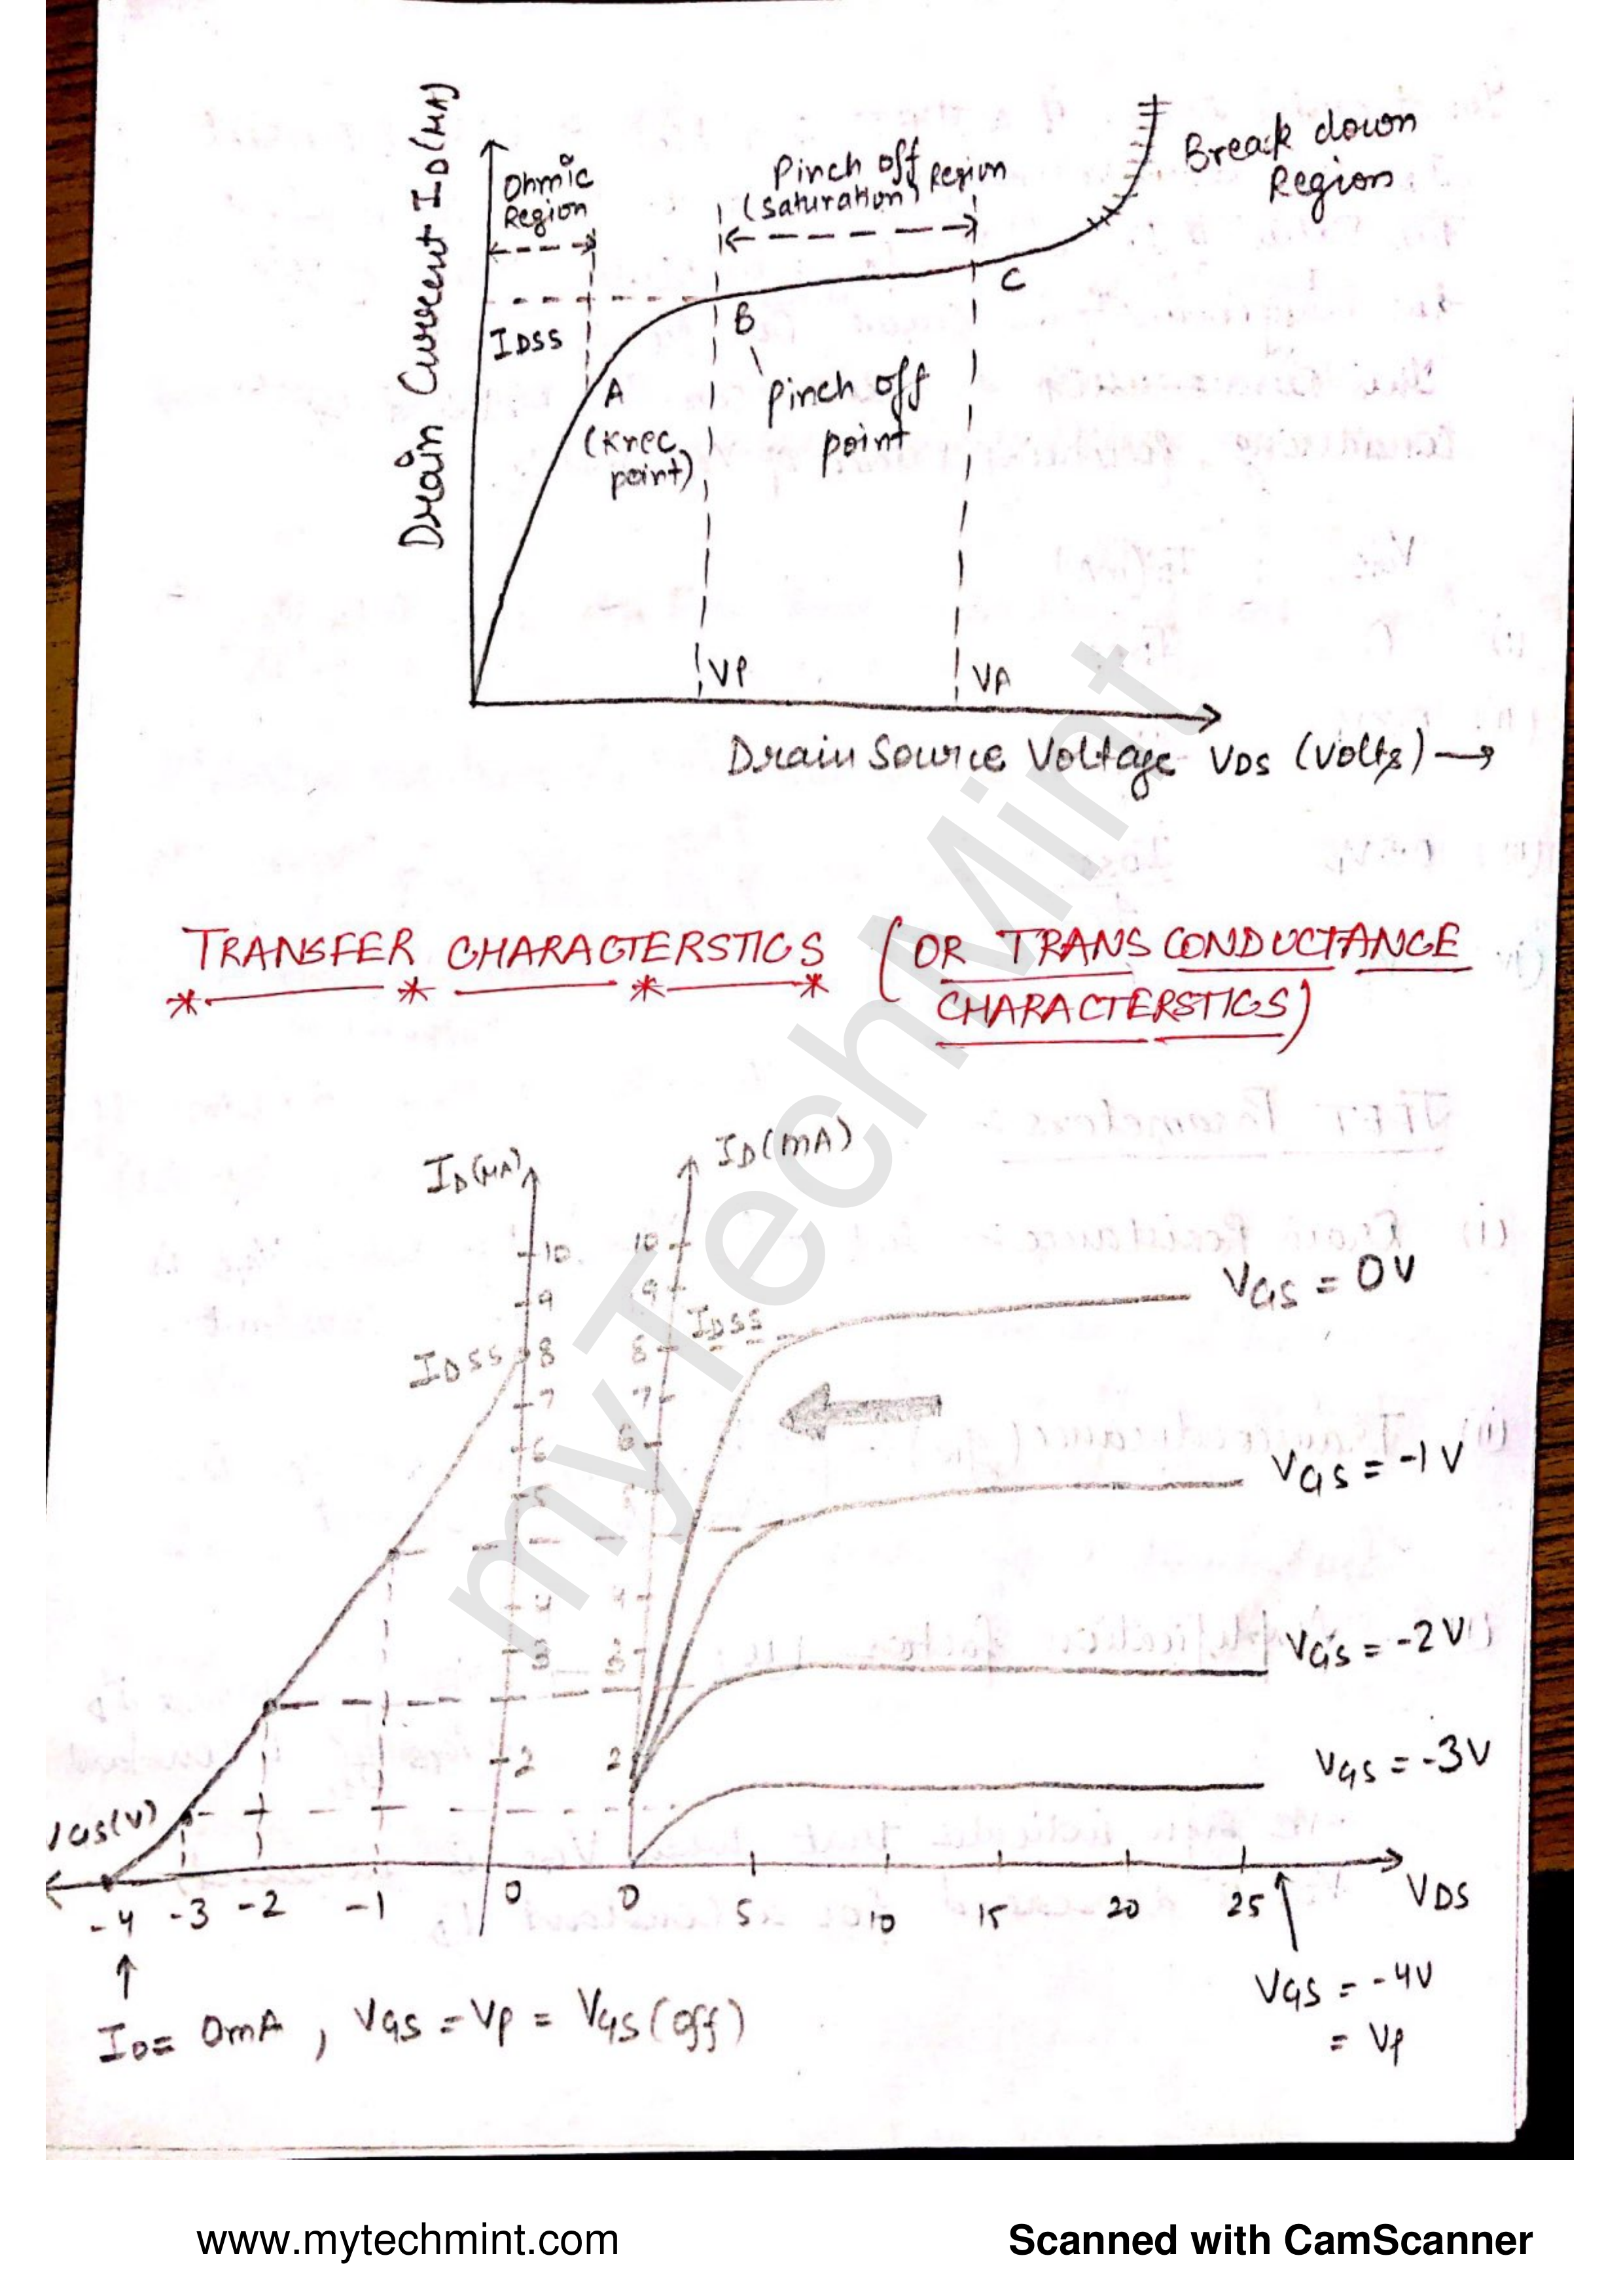 Drain Current ID(MA)
Ohmic
Region
Pinch off Region
(saturation)
Break down
Region
IDSS
A
(Knee
point)
B
Pinch off
point
C
VP
VA
Drain Source Voltage VDS (volts)
TRANSFER CHARACTERSTICS (OR TRANS CONDUCTANCE
CHARACTERSTICS)
ID(MA)
ID(mA)
10 10
9 9
IDSS 8 8 IDSS
7 7
6 6
5
4 4
3 3
2 2
VGS = 0V
VGS = -1V
VGS = -2V
VGS = -3V
VGS(V)
-4 -3 -2 -1 0 0 5 10 15 20 25 VDS
ID= 0mA, VGS = VP = VGS(off)
VGS = -4V
= VP
myTechMint
www.mytechmint.com
Scanned with CamScanner